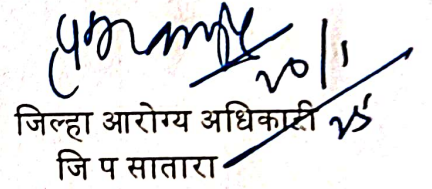 २०/१
जिल्हा आरोग्य अधिकारी २५
जि प सातारा